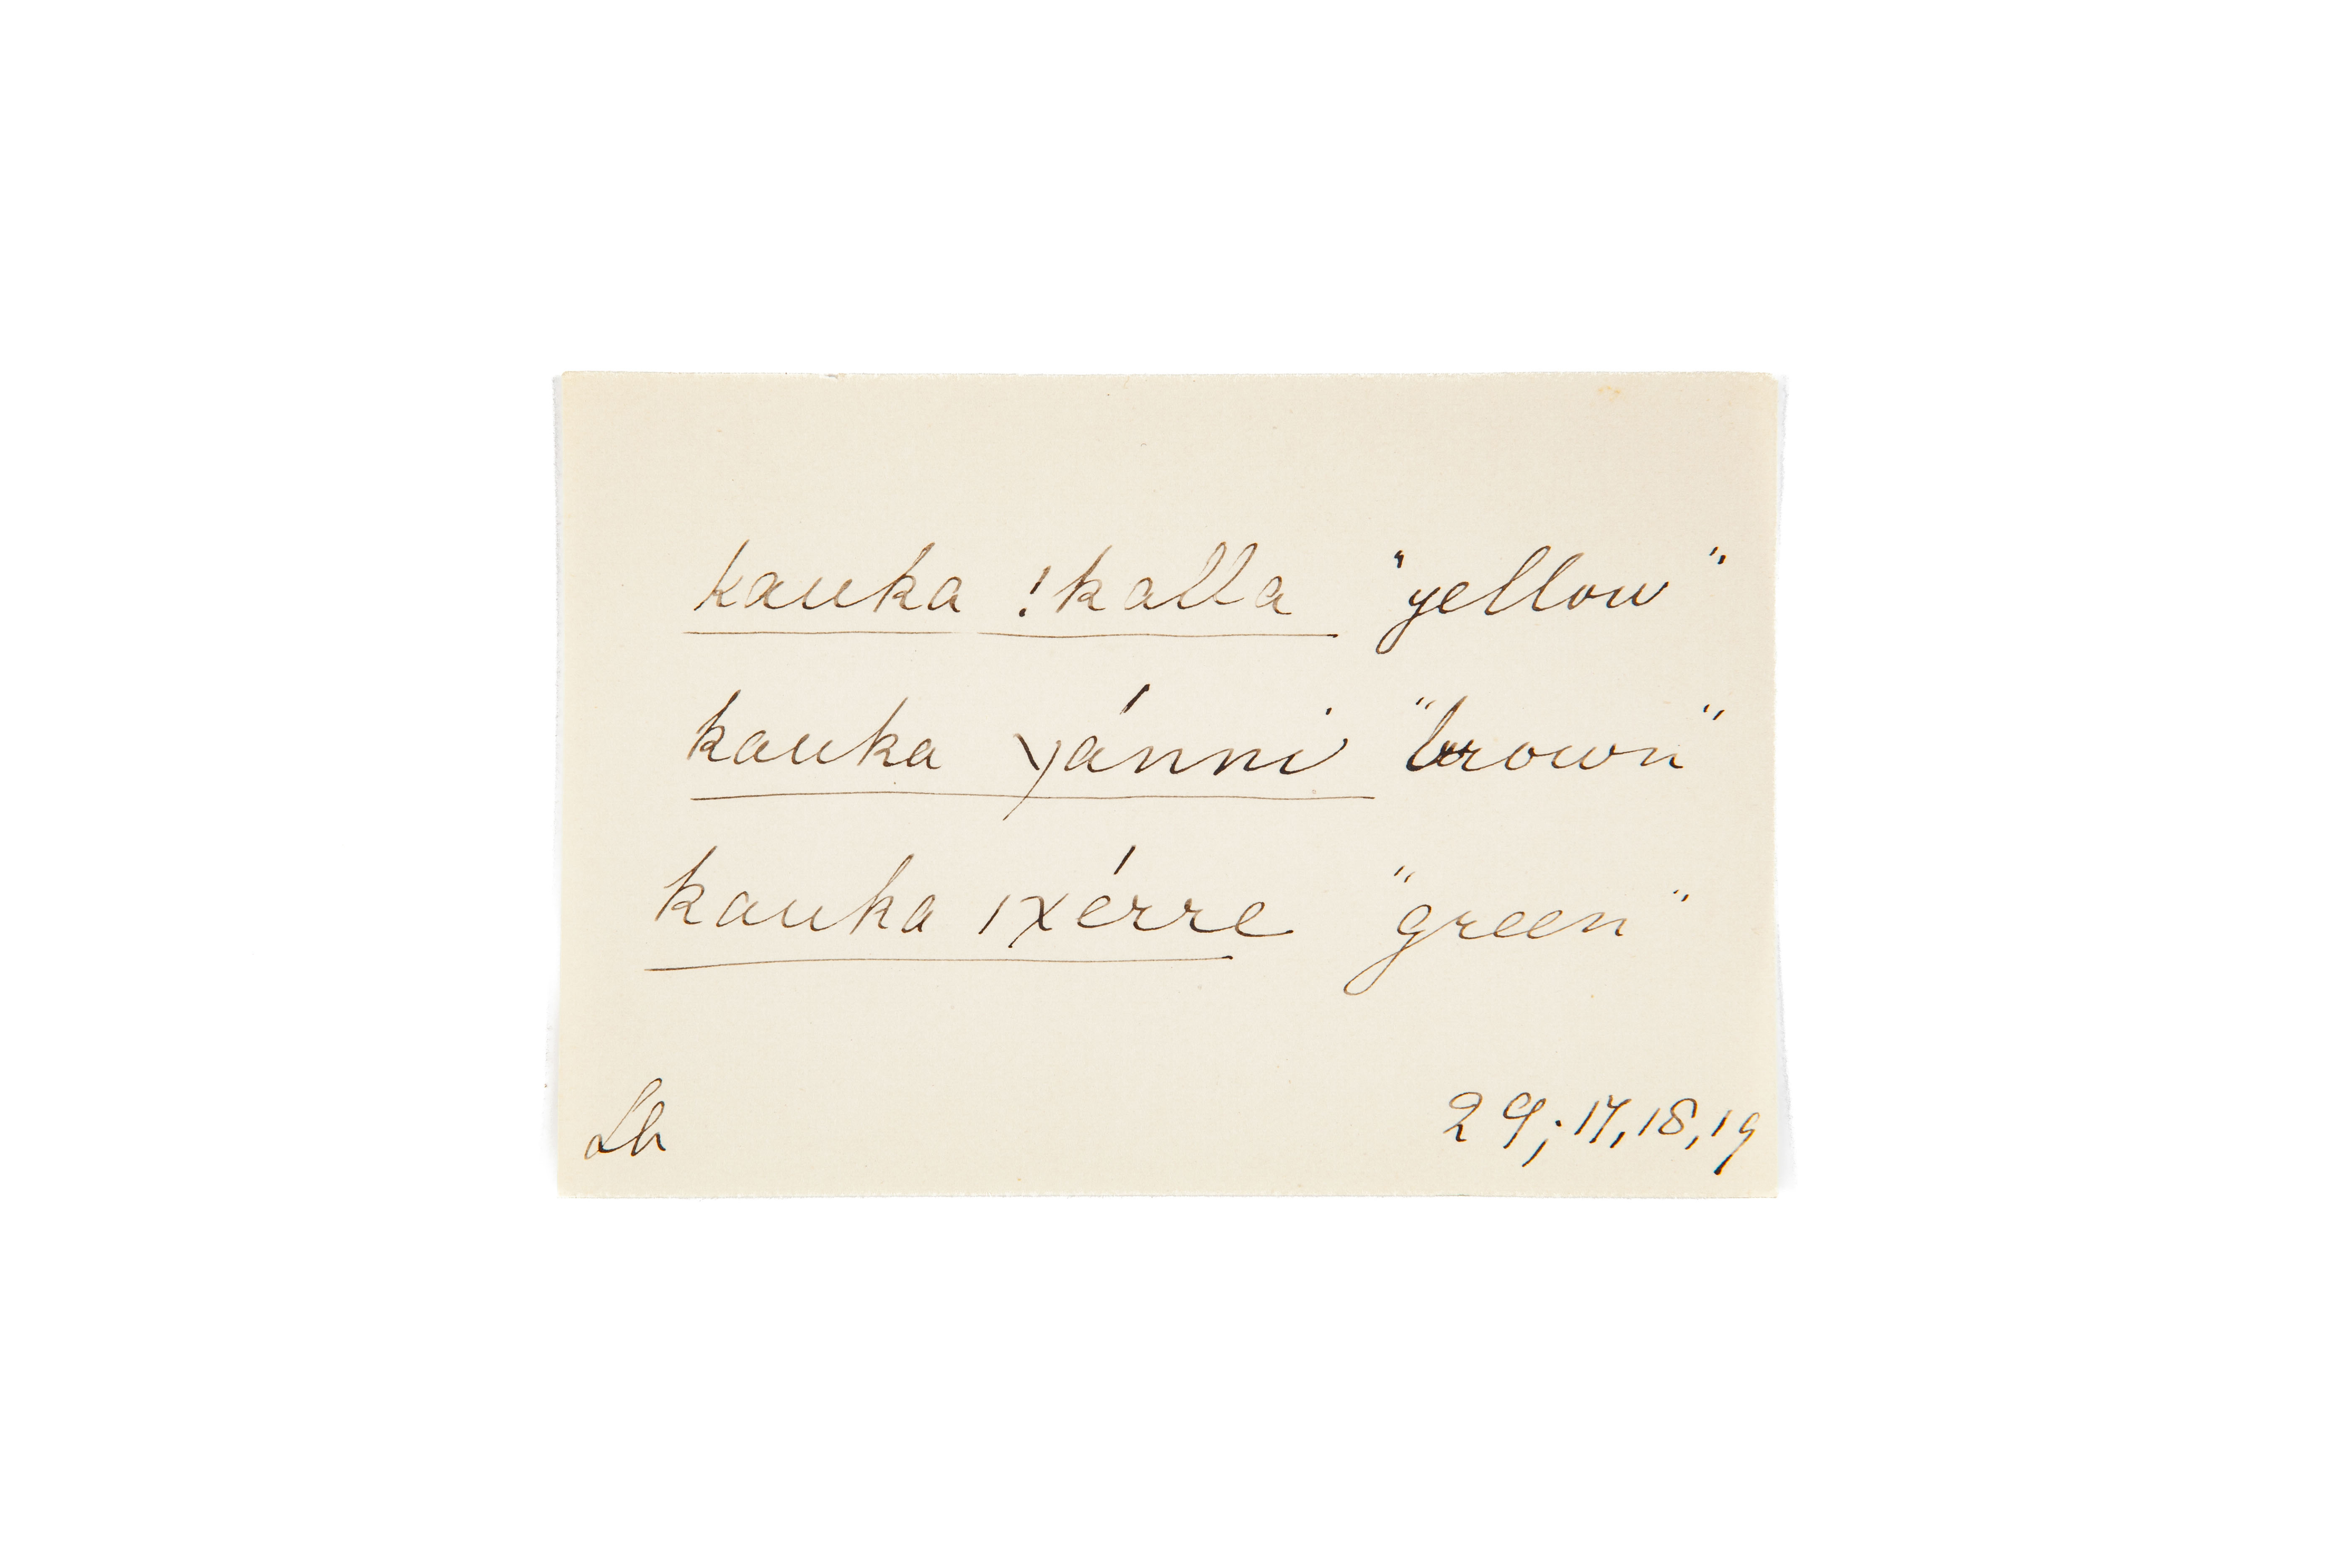 kauka !kalla "yellow"
kauka yánni "brown"
kauka ıχérre "green"
Lb
29; 17, 18, 19